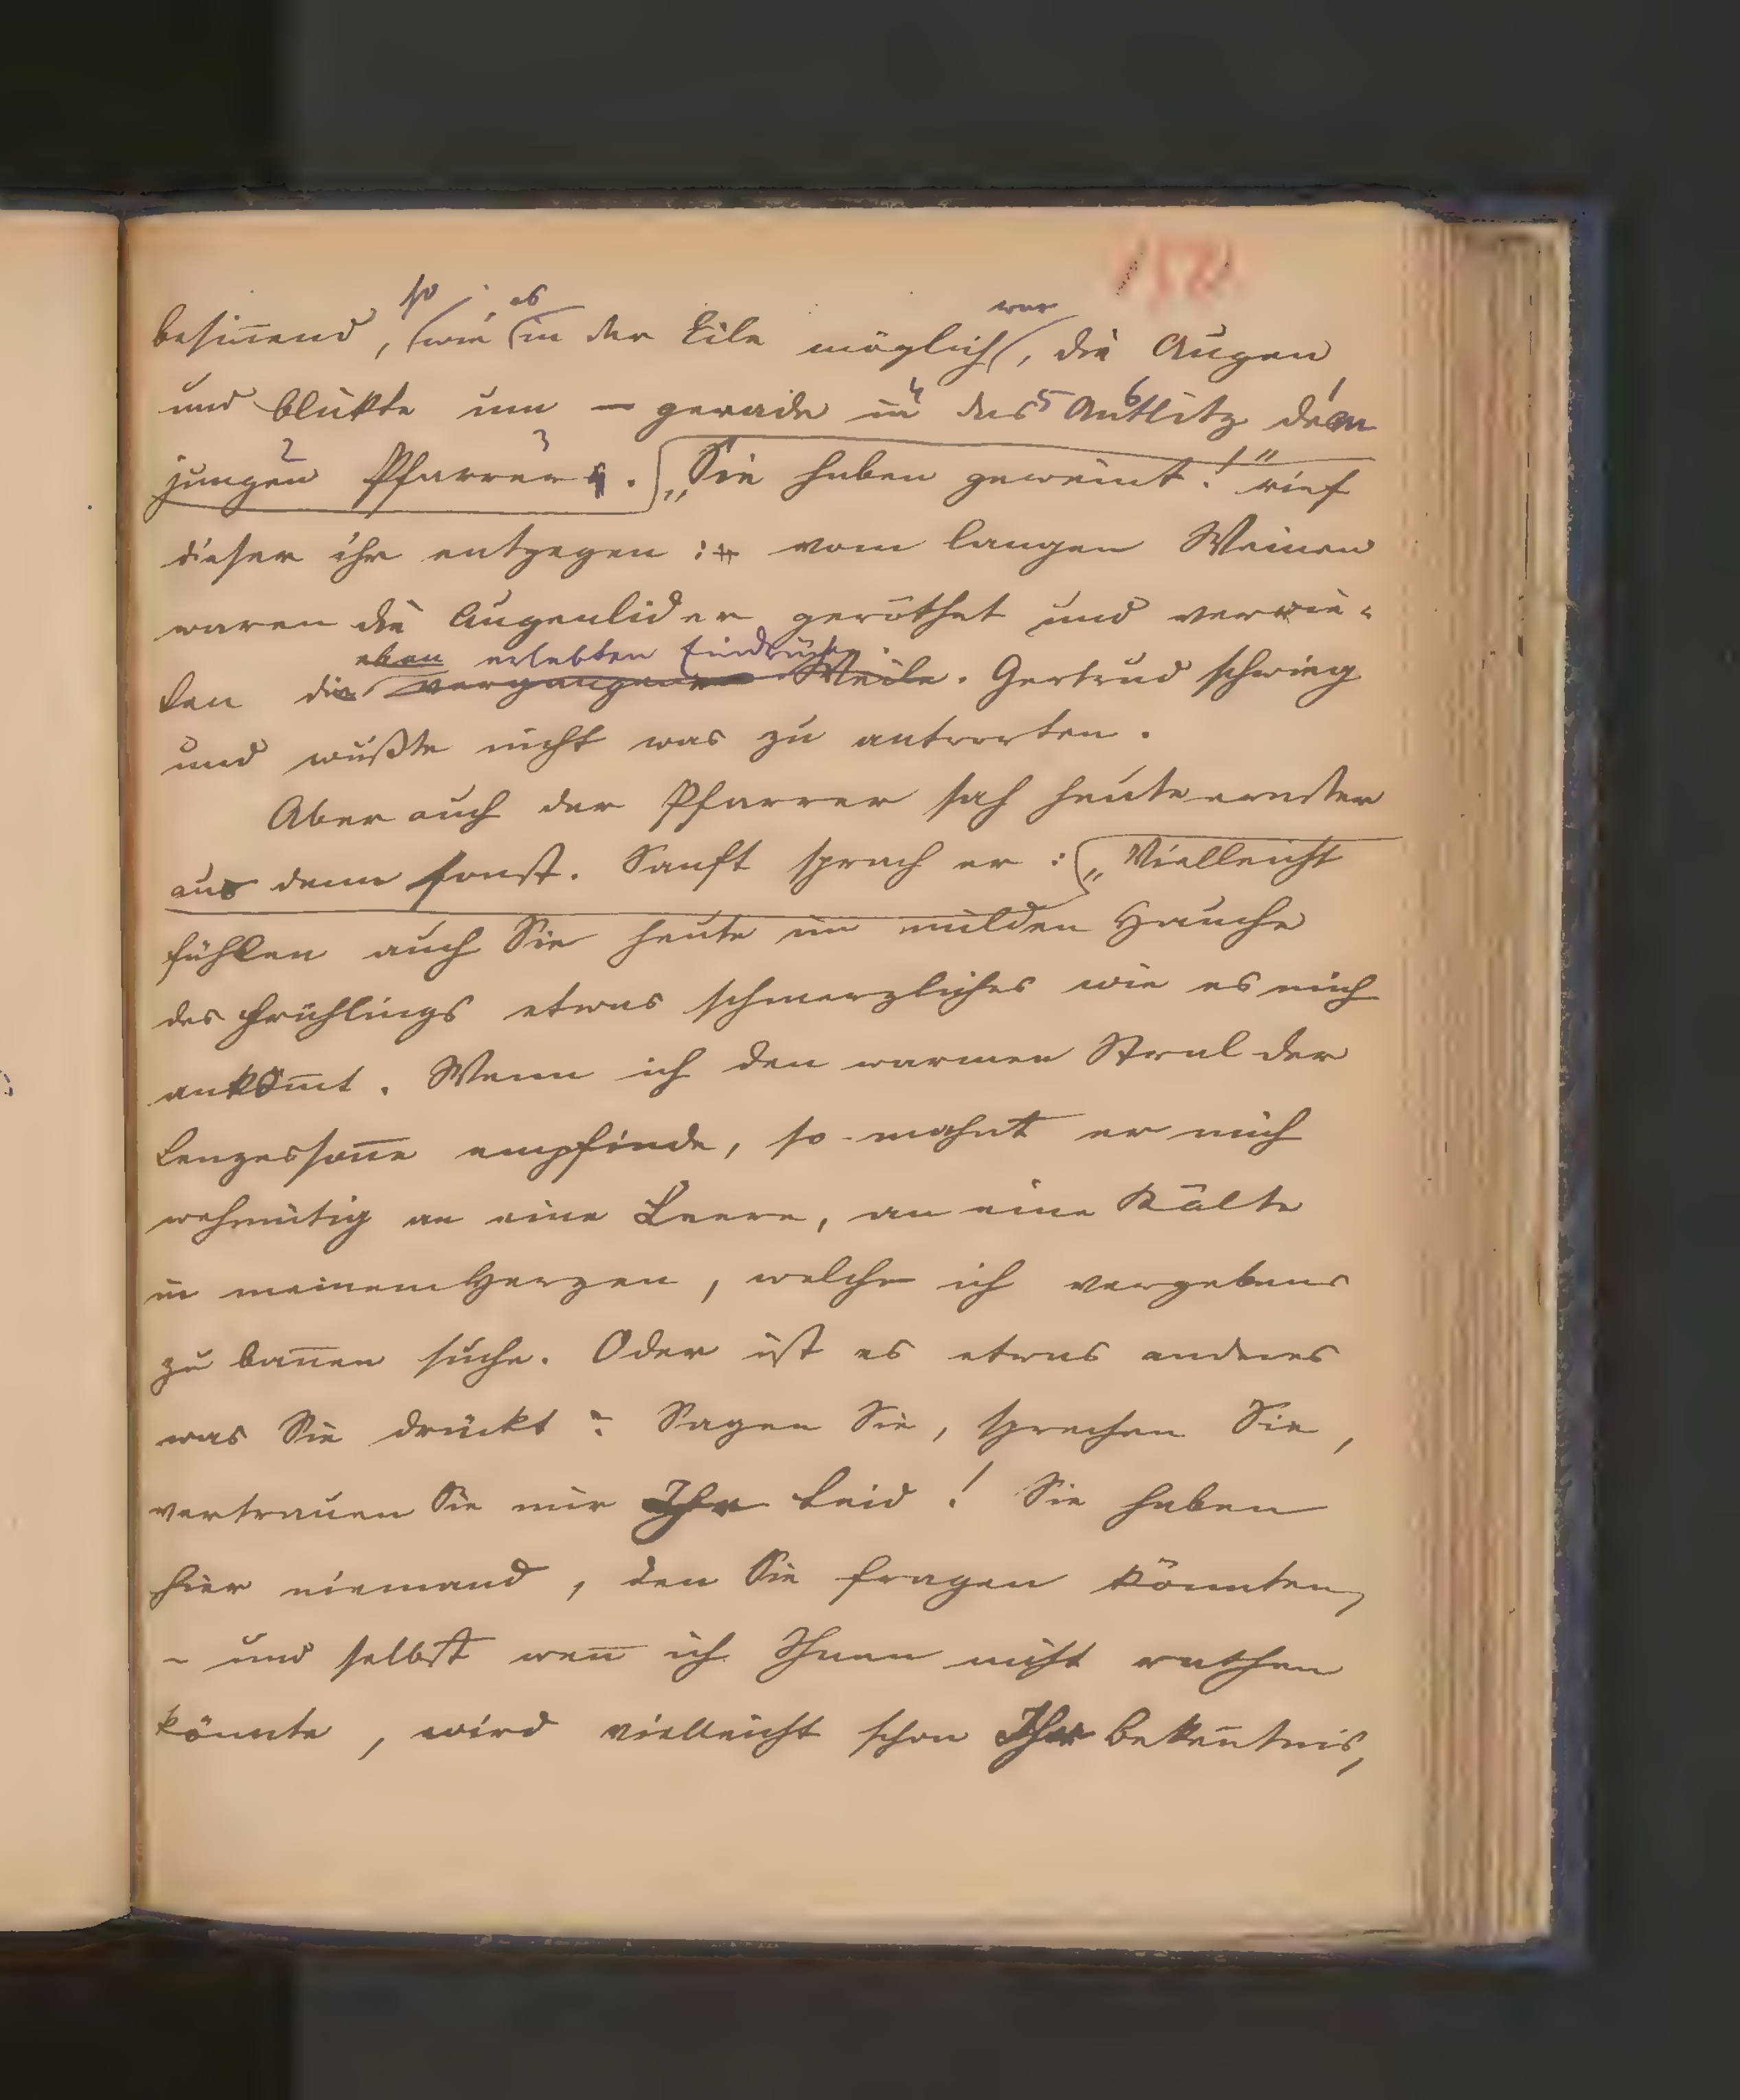 151
so es war
besin̄end, wie in der Eile möglich, die Augen
4 5 6 1
und blickte um — gerade in das Antlitz dem
2 3
jungen Pfarrer. „Sie haben geweint!" rief
dieser ihr entgegen: vom langen Weinen
waren die Augenlider geröthet und verrie-
eben erlebten Eindrücke
ten die vergangene Weile. Gertrud schwieg
und wußte nicht was zu antworten.
Aber auch der Pfarrer sah heute ernster
aus denn sonst. Sanft sprach er: „Vielleicht
fühlen auch Sie heute im milden Hauche
des Frühlings etwas schmerzliches wie es mich
ankom̄t. Wenn ich den warmen Stral der
Lenzesson̄e empfinde, so mahnt er mich
wehmütig an eine Leere, an eine Kälte
in meinem Herzen, welche ich vergebens
zu ban̄en suche. Oder ist es etwas anderes
was Sie drückt? Sagen Sie, sprechen Sie,
vertrauen Sie mir Ihr Leid! Sie haben
hier niemand, den Sie fragen könnten,
– und selbst wen̄ ich Ihnen nicht rathen
könnte, wird vielleicht schon Ihr Beken̄tnis,